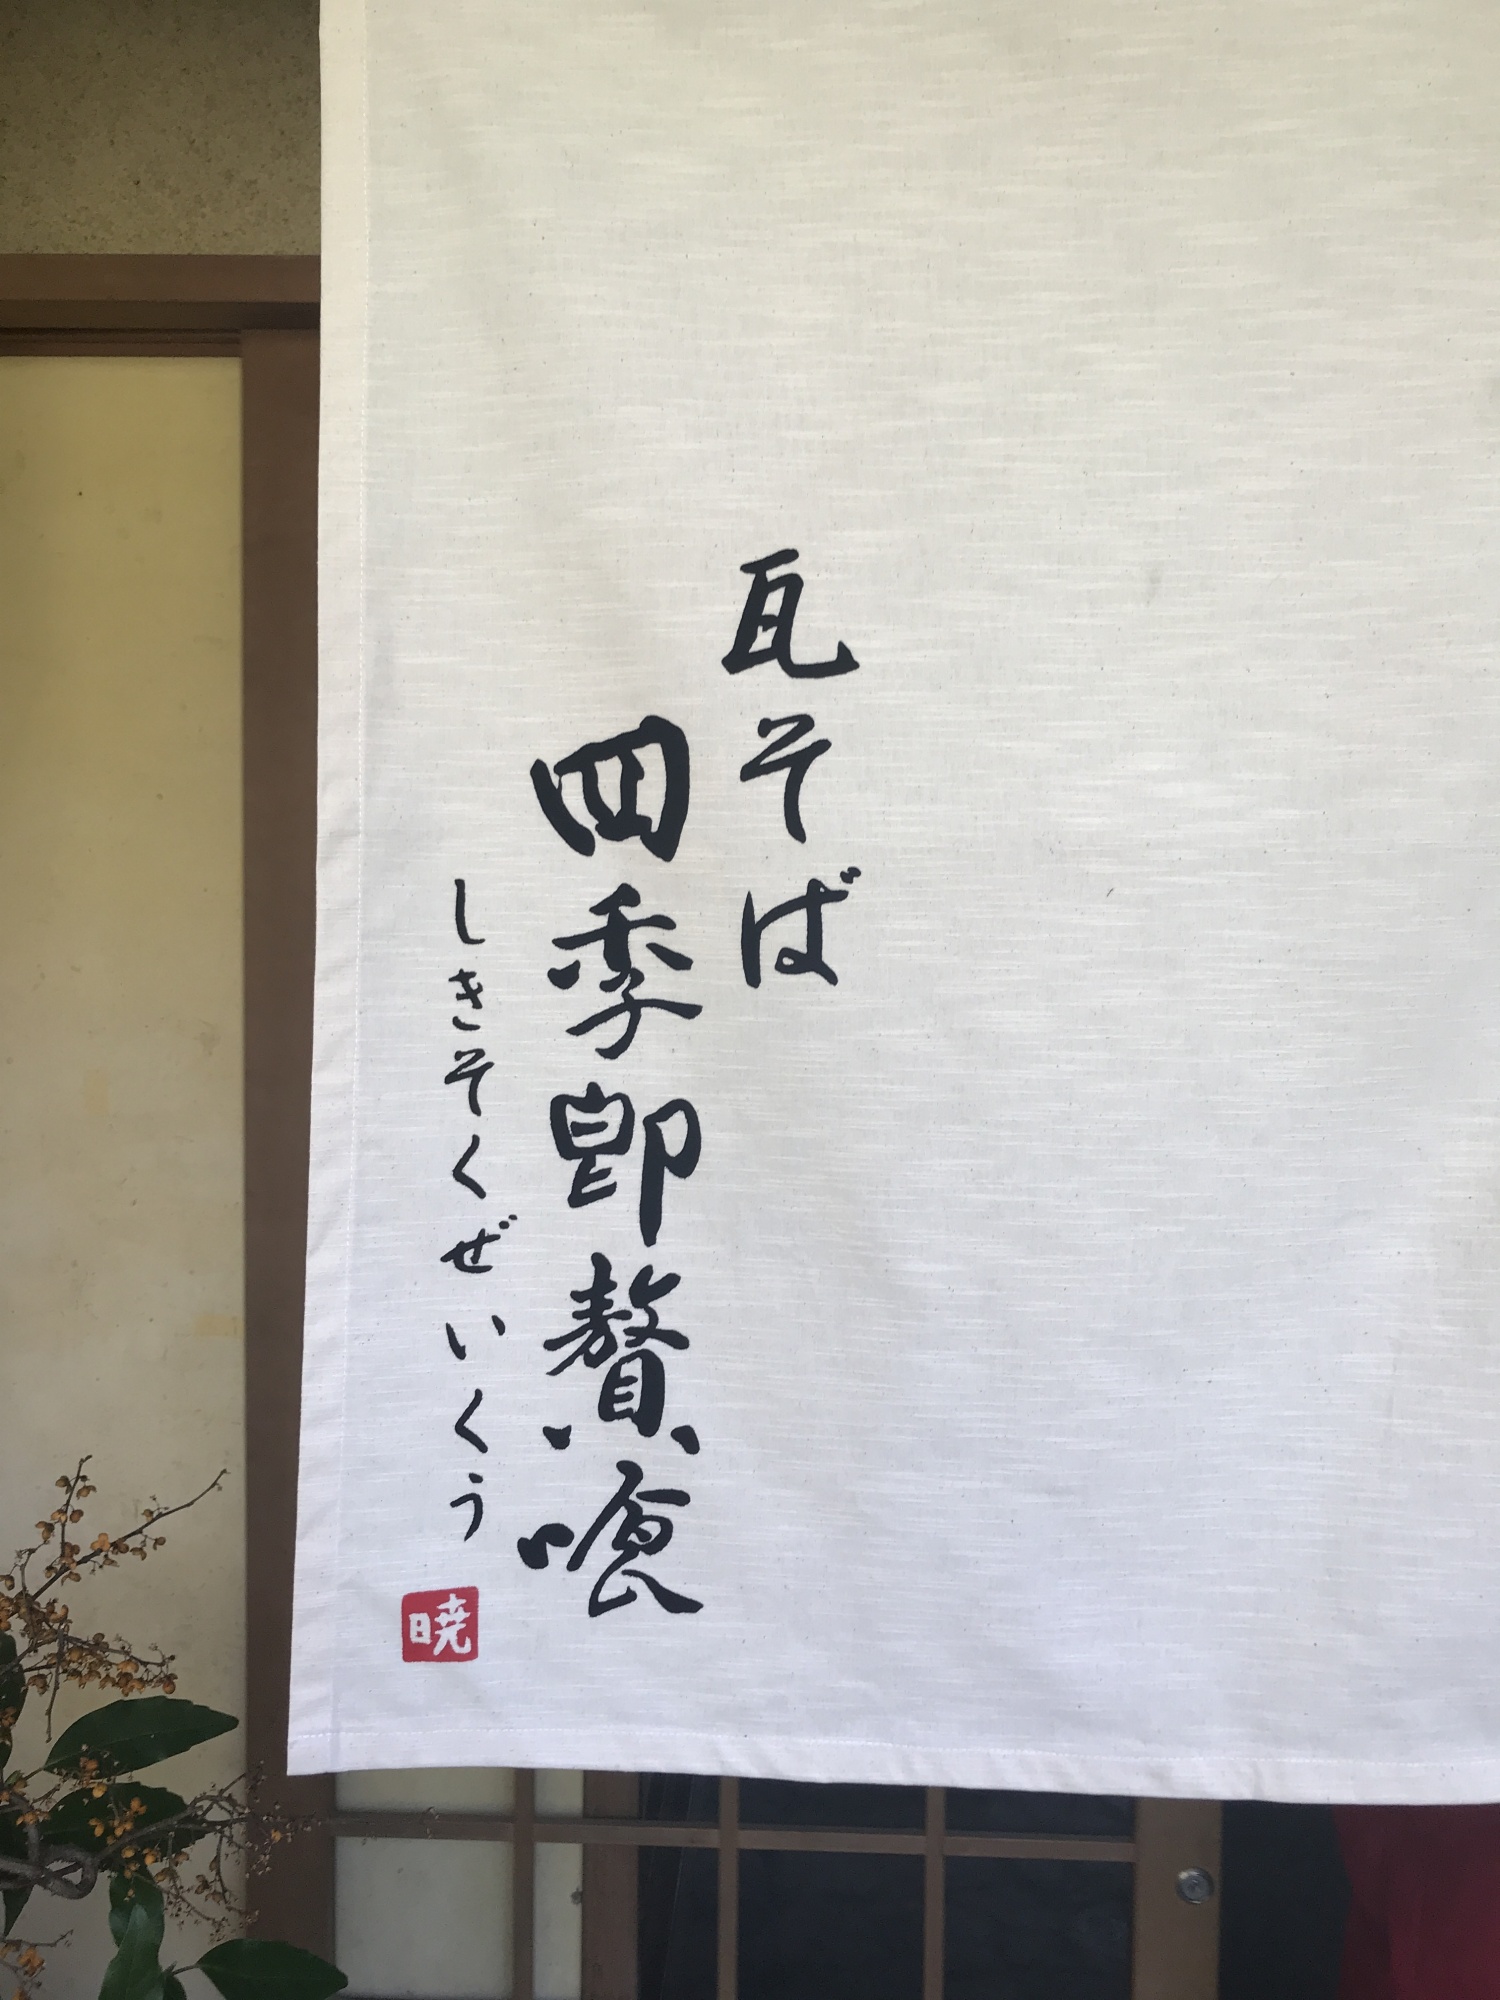 瓦そば
四季即贅喰
しきそくぜいくう
暁